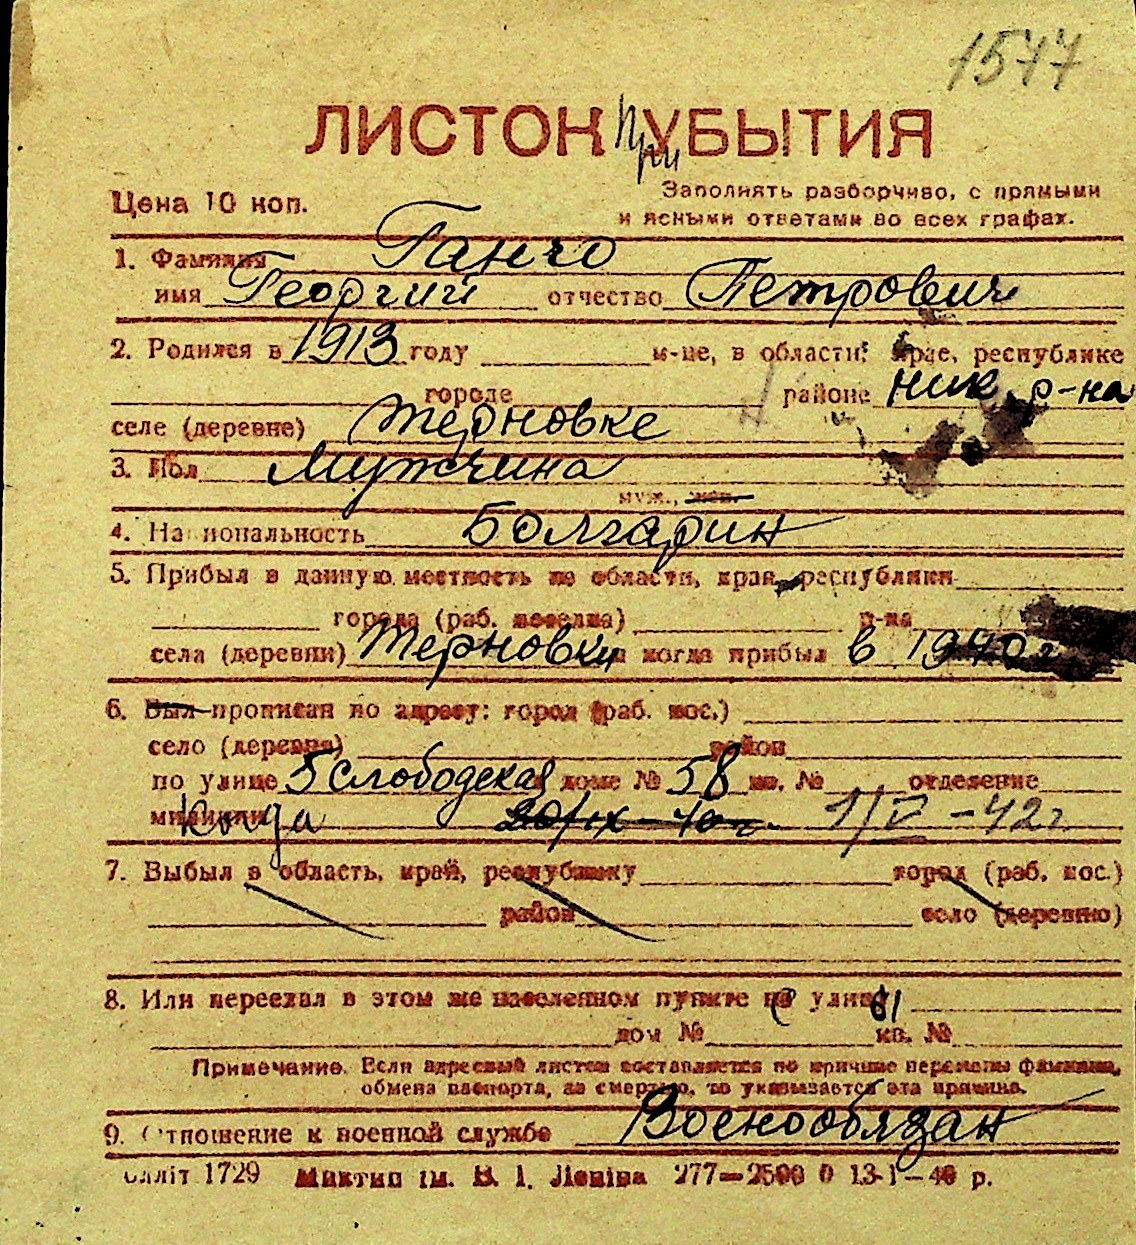 1577
ЛИСТОК При УБЫТИЯ
Цена 10 коп.
Заполнять разборчиво, с прямыми
и ясными ответами во всех графах.
1. Фамилия Ганчо
имя Георгий отчество Петрович
2. Родился в 1913 году м-це, в области, крае, республике
городе районе Ник. р-на
селе (деревне) Терновке
3. Пол Мужчина
муж., жен.
4. Национальность Болгарин
5. Прибыл в данную местность из области, края, республики
города (раб. поселка) р-на
села (деревни) Терновки и когда прибыл в 1940 г
6. Был прописан по адресу: город (раб. пос.)
село (деревня) район
по улице 5 слободская доме № 58 кв. № отделение
милиции Когда 20/IX-40 г. 1/V-42 г
7. Выбыл в область, край, республику город (раб. пос.)
район село (деревню)
8. Или переехал в этом же населенном пункте с улицы
дом № кв. №
Примечание. Если адресный листок составляется по причине перемены фамилии,
обмена паспорта, за смертью, то указывается эта причина.
9. Отношение к военной службе Военнообязан
1729 Миктип ім. В. І. Леніна 277—2500 0 13-1—40 р.